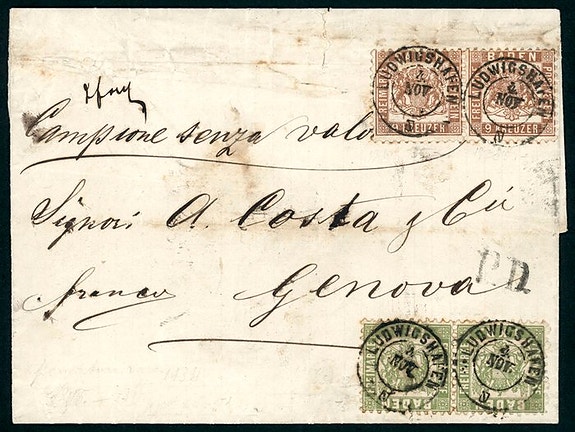 BADEN
FREIMARKE
9 KREUZER
9 KREUZER
LUDWIGSHAFEN
2
NOV
LUDWIGSHAFEN
2
NOV
Campione senza valo
Signori A. Costa & Cii
P.D.
franco Genova
LUDWIGSHAFEN
NOV
LUDWIGSHAFEN
NOV
BADEN
BADEN